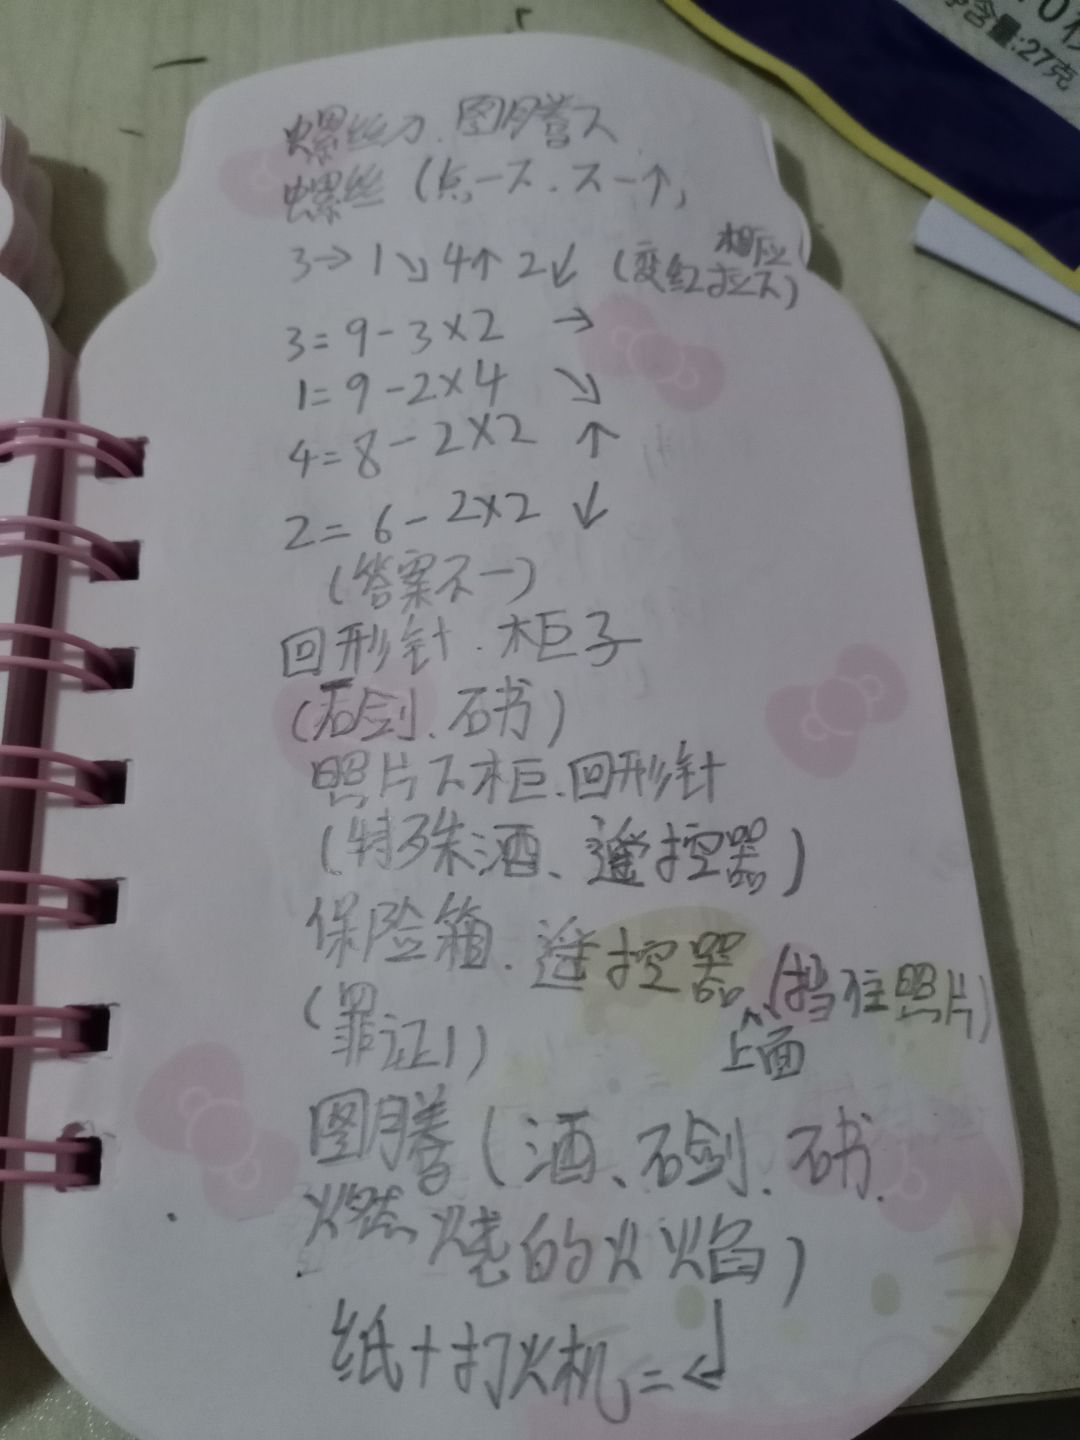 0秒
含量:27克
螺丝刀.图腾下
螺丝(点一下.下一个,
3→1↘4↑2↙(变红相应拉下)
3=9-3×2 →
1=9-2×4 ↘
4=8-2×2 ↑
2=6-2×2 ↙
(答案不一)
回形针.柜子
(石剑、石书)
照片下柜.回形针
(特殊酒、遥控器)
保险箱.遥控器(挡住照片)
(罪证1) 上面
图腾(酒、石剑、石书、
燃烧的火焰)
纸+打火机=↲